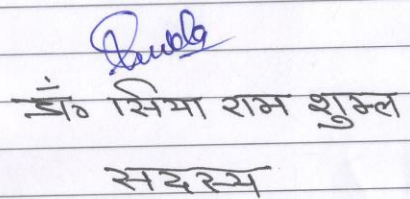 डॉ० सिया राम शुक्ल
सदस्य